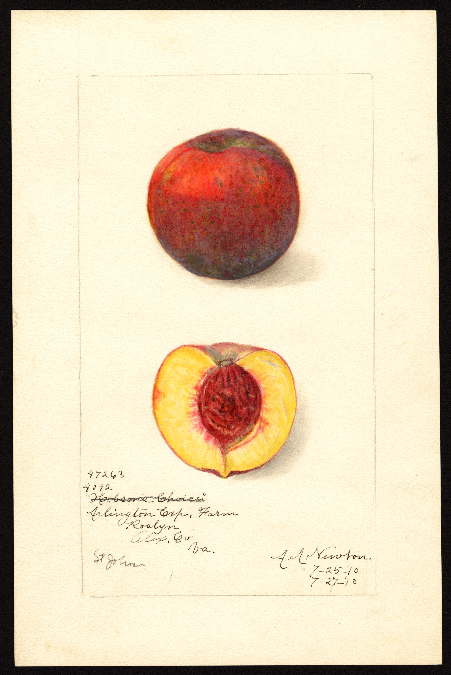 47263
4092
Hobson's Choice
Arlington Exp. Farm
Roslyn
Alex. Co.
Va.
St John
A. A. Newton.
7-25-10
7-27-10